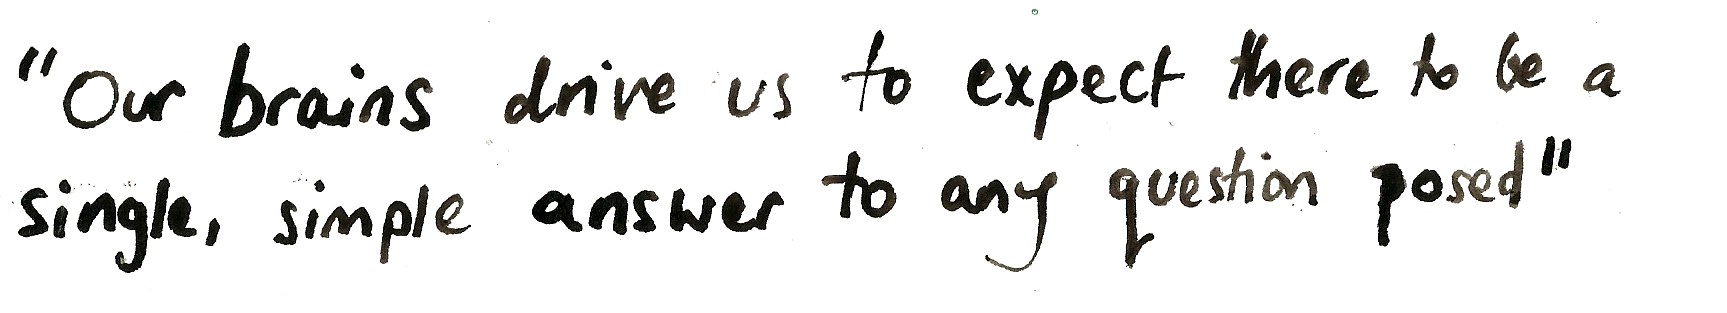 "Our brains drive us to expect there to be a
single, simple answer to any question posed"